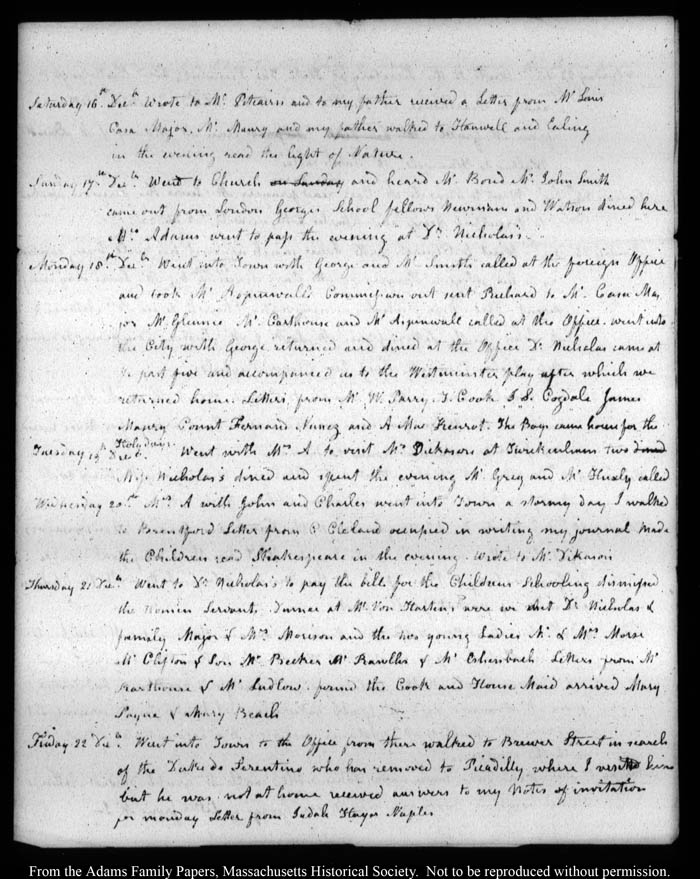 Saturday 16th Decr. Wrote to Mr. Pitcairn and to my father received a Letter from Mr Louis
Casa Major. Mr. Maury and my father walked to Hanwell and Ealing
in the evening read the light of Nature.
Sunday 17th Decr. Went to Church on Sunday and heard Mr. Bond Mr. John Smith
came out from London Georges School fellows Newman and Watson dined here
Mrs. Adams went to pass the evening at Dr. Nicholas's
Monday 18th Decr. Went into Town with George and Mr. Smith called at the foreign Office
and took Mr Aspinwall's Commission out sent Richard to Mr. Casa Ma
jor Mr. Glennie Mr. Carthouse and Mr Aspinwall called at the Office. went into
the City with George returned and dined at the Office Dr Nicholas came at
½ past five and accompanied us to the Westminster play after which we
returned home. Letters, from Mr. W. Parry. J. Cook J S. Cogdale James
Maury Count Fernand Nunez and A Mac The Boys came home for the
Holydays
Tuesday 19th Decr. Went with Mrs A to visit Mrs Dickason at Twickenham two dined
Miss Nicholas's dined and spent the evening Mr Grey and Mr Huxly called
Wednesday 20th Mrs. A with John and Charles went into Town a stormy day I walked
to Brentford Letter from C Cleland occupied in writing my journal made
the Children read Shakespeare in the evening. wrote to Mr. Dikason
Thursday 21 Decr. Went to Dr Nicholas's to pay the bills for the Childrens Schooling dismissed
the Women Servants, Dinner at Mr. Von Harten's were we met Dr Nicholas &
family Major & Mrs. Morison and the two young Ladies Mr. & Mrs. Morse
Mr Clifton & Son Mr Becker Mr Rawlles & Mr Eshersbach Letters from Mr
Carthouse & Mr Ludlow. the Cook and House Maid arrived Mary
Payne & Mary Beach
Friday 22 Decr. Went into Town to the Office from there walked to Brewer Street in search
of the Duke de Sorentino who has removed to Picadilly, where I visited him
but he was not at home received answers to my Notes of invitation
for monday Letter from Judah Hays Naples
From the Adams Family Papers, Massachusetts Historical Society. Not to be reproduced without permission.